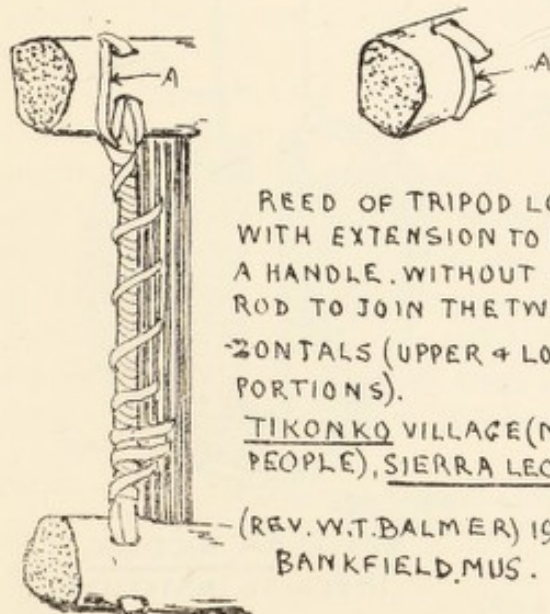 A
A
REED OF TRIPOD LO
WITH EXTENSION TO
A HANDLE. WITHOUT
ROD TO JOIN THE TW
-ZONTALS (UPPER & LO
PORTIONS).
TIKONKO VILLAGE (M
PEOPLE), SIERRA LEO
(REV. W. T. BALMER) 19
BANKFIELD. MUS.